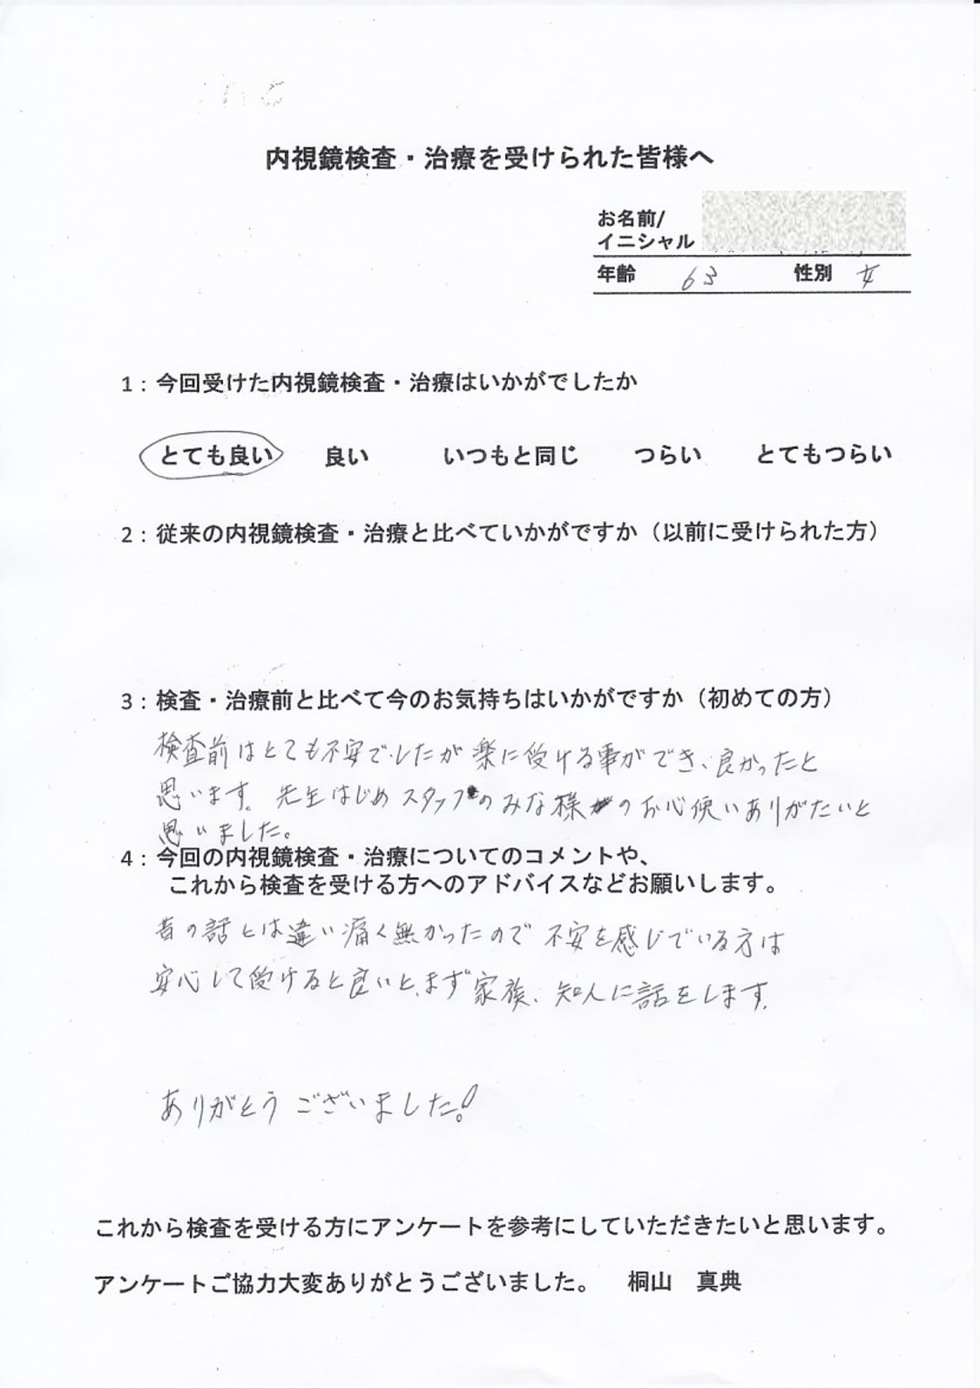 内視鏡検査・治療を受けられた皆様へ
お名前/
イニシャル
年齢 63 性別 女
1：今回受けた内視鏡検査・治療はいかがでしたか
とても良い 良い いつもと同じ つらい とてもつらい
2：従来の内視鏡検査・治療と比べていかがですか（以前に受けられた方）
3：検査・治療前と比べて今のお気持ちはいかがですか（初めての方）
検査前はとても不安でしたが楽に受ける事ができ、良かったと
思います。先生はじめスタッフのみな様のお心使いありがたいと
思いました。
4：今回の内視鏡検査・治療についてのコメントや、
これから検査を受ける方へのアドバイスなどお願いします。
昔の話とは違い痛く無かったので不安を感じでいる方は
安心して受けると良いと、まず家族、知人に話をします。
ありがとうございました。!
これから検査を受ける方にアンケートを参考にしていただきたいと思います。
アンケートご協力大変ありがとうございました。 桐山 真典